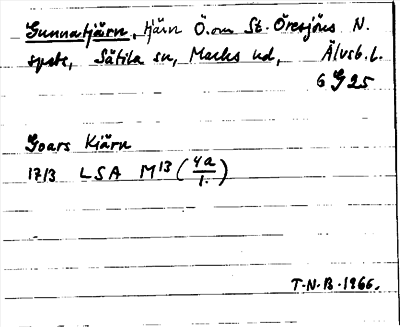 Gunnatjärn, tjärn Ö. om St. Öresjöns N.
spets, Sätila sn, Marks hd, Älvsb. l.
6 G 25
Goars Kiärn
1713 LSA M13 (4a/1.)
T-N.B.1966.